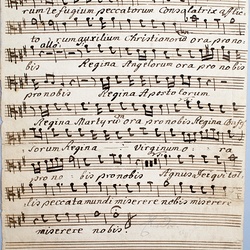 rum refugium peccatorum Consolatrix afflic
to rum auxilium Christianorum ora pro no:
allo:
bis Regina Angelorum ora pro nobis
pro nobis Regina Apostolorum
Regina Martyrum ora pro nobis Regina Confes
sorum Regina Virginum o: ra
pro no: bis pro nobis Agnus Dei qui tol:
lis peccata mundi miserere nobis miserere
miserere nobis